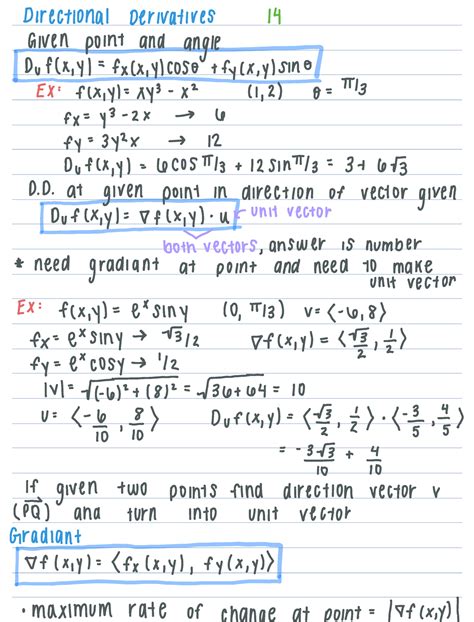 Directional Derivatives 14
Given point and angle
Duf(x,y) = fx(x,y)cosθ + fy(x,y)sinθ
Ex: f(x,y) = xy³ - x² (1,2) θ = π/3
fx = y³ - 2x → 6
fy = 3y²x → 12
Duf(x,y) = 6cos π/3 + 12 sin π/3 = 3 + 6√3
D.D. at given point in direction of vector given
Duf(x,y) = ∇f(x,y) · u ← unit vector
both vectors, answer is number
* need gradiant at point and need to make
unit vector
Ex: f(x,y) = eˣ siny (0, π/3) v = ⟨-6,8⟩
fx = eˣ siny → √3/2 ∇f(x,y) = ⟨√3/2, 1/2⟩
fy = eˣ cosy → 1/2
|v| = √(-6)² + (8)² = √36+64 = 10
u = ⟨-6/10, 8/10⟩ Duf(x,y) = ⟨√3/2, 1/2⟩ · ⟨-3/5, 4/5⟩
= -3√3/10 + 4/10
If given two points find direction vector v
(PQ) and turn into unit vector
Gradiant
∇f(x,y) = ⟨fx(x,y), fy(x,y)⟩
• maximum rate of change at point = |∇f(x,y)|